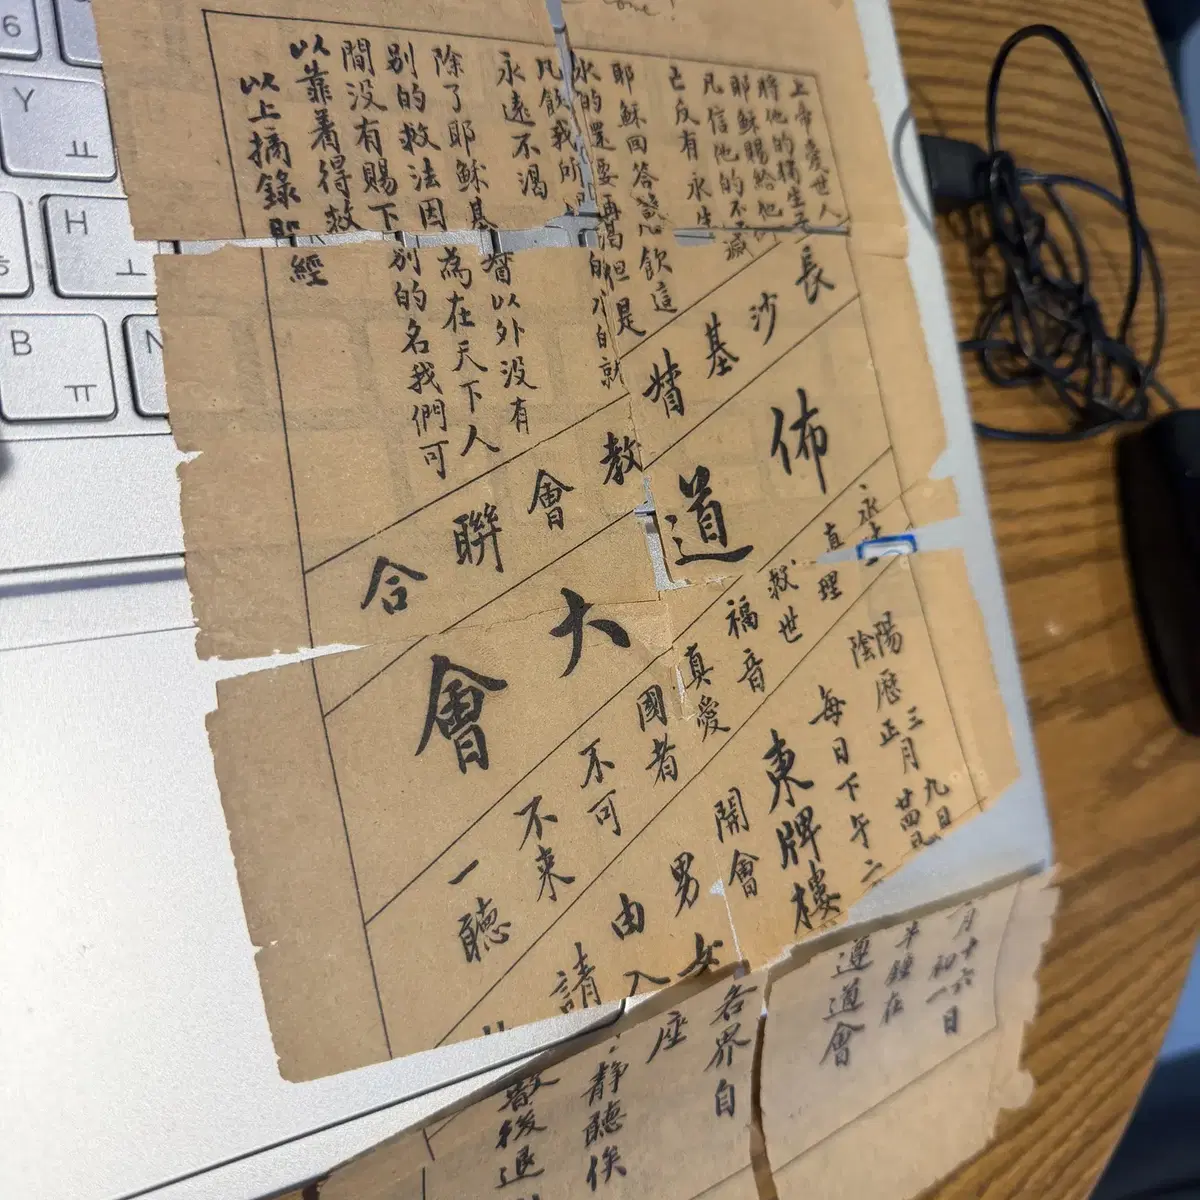 one!
上帝愛世人
將他的獨生子
耶穌賜給他
凡信他的不滅
亡反有永生
耶穌回答 飲這
水的還要再渴但是
凡飲我所 的水 就
永遠不渴
除了耶穌基督以外沒有
別的救法因為在天下人
間沒有賜下別的名我們可
以靠着得救
以上摘錄 經
長沙基督教會聯合
佈道大會
永
直理
救世
福音
真愛
國者
不可
不來
一聽
陽歷三月九日 月十六日
陰 正 廿四 初一日
每日下午二 半鐘在
東牌樓遵道會
開會
男女各界自
由入座
請 靜聽俟
散後退
6
Y ㅛ
H ㅗ
B ㅠ
N